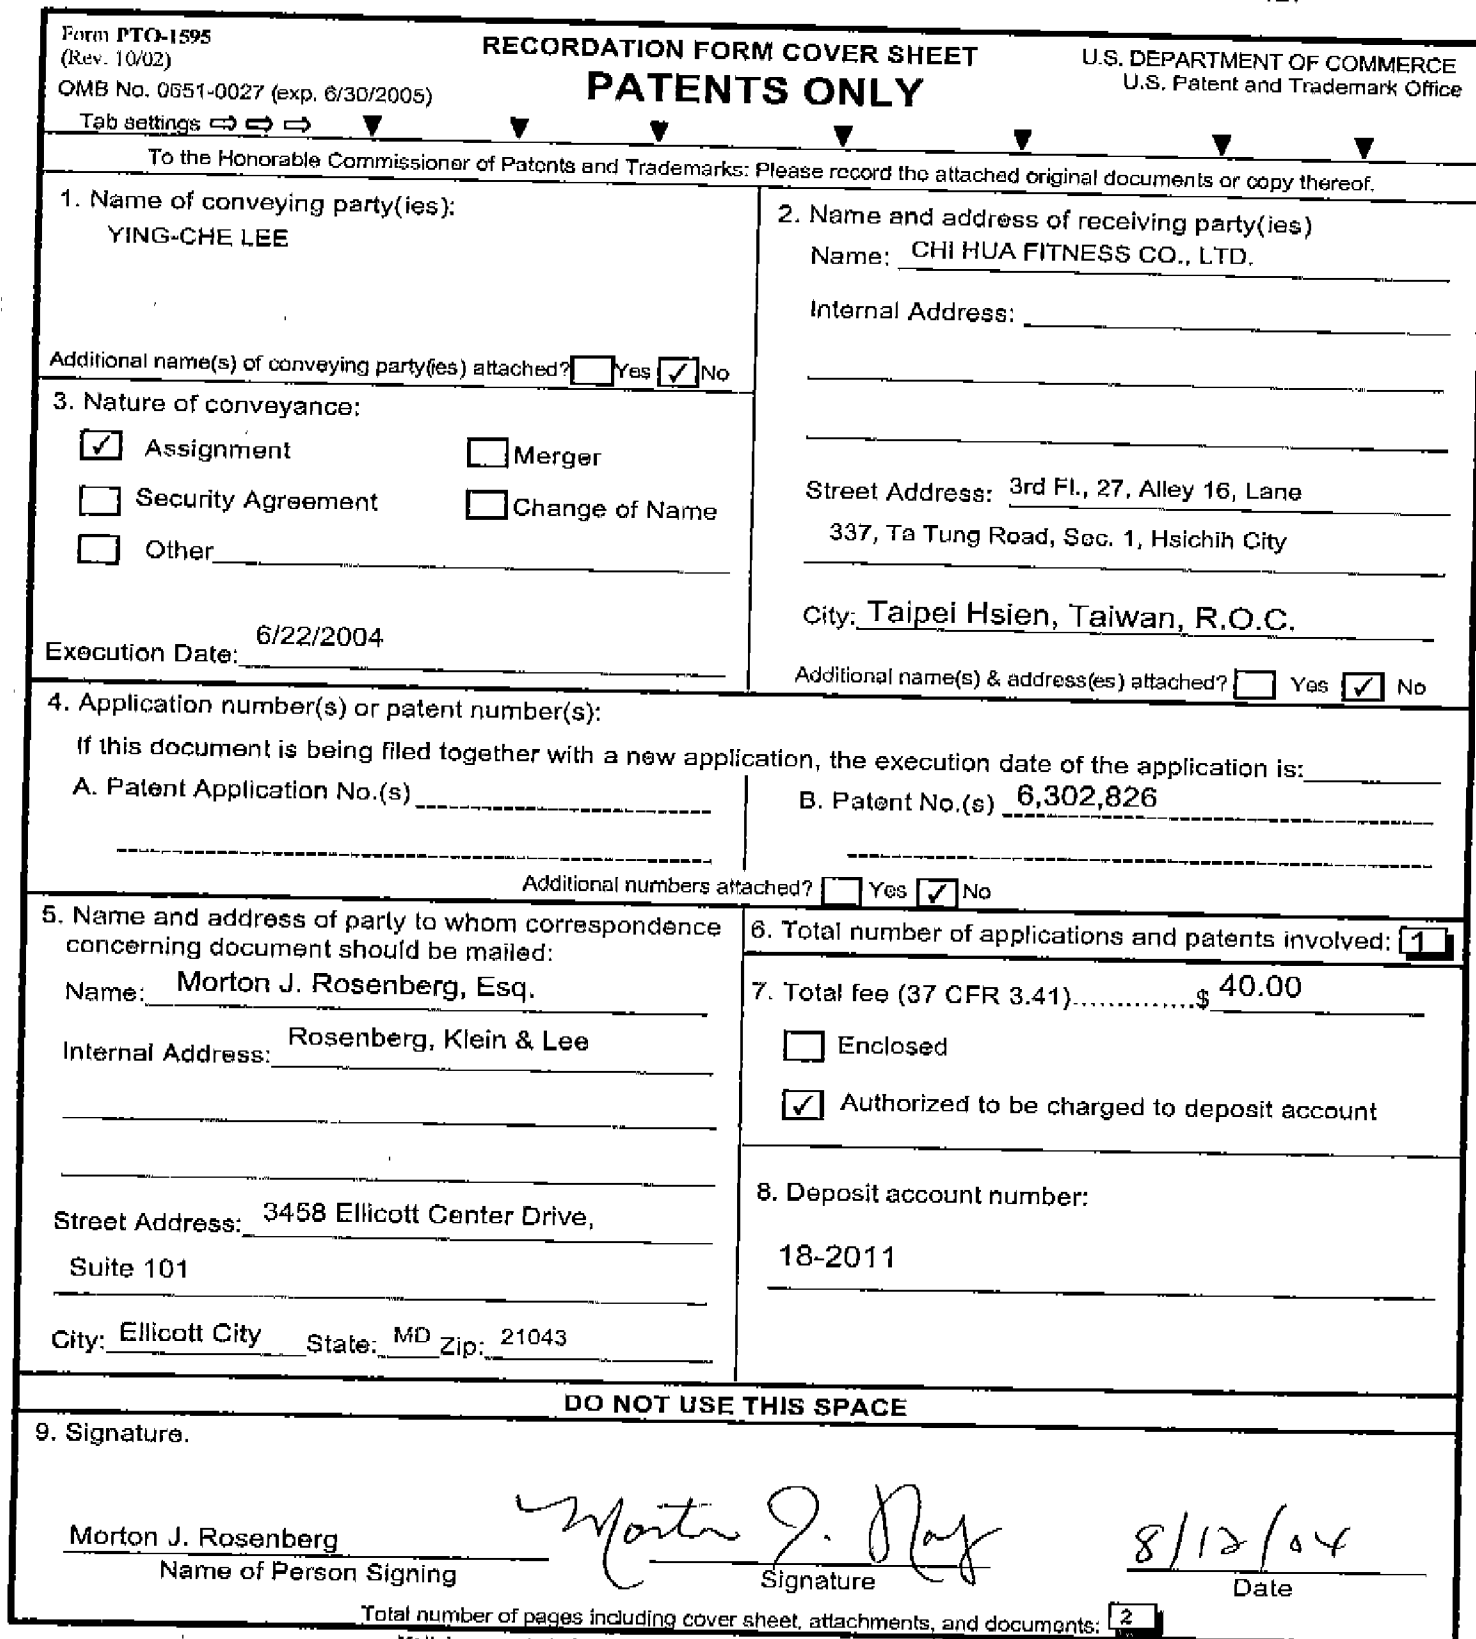 Form PTO-1595
(Rev. 10/02)
OMB No. 0651-0027 (exp. 6/30/2005)
Tab settings ⇨ ⇨ ⇨ ▼ ▼ ▼ ▼ ▼ ▼ ▼
RECORDATION FORM COVER SHEET
PATENTS ONLY
U.S. DEPARTMENT OF COMMERCE
U.S. Patent and Trademark Office
To the Honorable Commissioner of Patents and Trademarks: Please record the attached original documents or copy thereof.
1. Name of conveying party(ies):
YING-CHE LEE
Additional name(s) of conveying party(ies) attached? Yes ✓ No
2. Name and address of receiving party(ies)
Name: CHI HUA FITNESS CO., LTD.
Internal Address:
Street Address: 3rd Fl., 27, Alley 16, Lane
337, Ta Tung Road, Sec. 1, Hsichih City
City: Taipei Hsien, Taiwan, R.O.C.
Additional name(s) & address(es) attached? Yes ✓ No
3. Nature of conveyance:
✓ Assignment Merger
Security Agreement Change of Name
Other
Execution Date: 6/22/2004
4. Application number(s) or patent number(s):
If this document is being filed together with a new application, the execution date of the application is:
A. Patent Application No.(s)
B. Patent No.(s) 6,302,826
Additional numbers attached? Yes ✓ No
5. Name and address of party to whom correspondence
concerning document should be mailed:
Name: Morton J. Rosenberg, Esq.
Internal Address: Rosenberg, Klein & Lee
Street Address: 3458 Ellicott Center Drive,
Suite 101
City: Ellicott City State: MD Zip: 21043
6. Total number of applications and patents involved: 1
7. Total fee (37 CFR 3.41)..............$ 40.00
Enclosed
✓ Authorized to be charged to deposit account
8. Deposit account number:
18-2011
DO NOT USE THIS SPACE
9. Signature.
Morton J. Rosenberg
Name of Person Signing
Morton J.
Signature
8/12/04
Date
Total number of pages including cover sheet, attachments, and documents: 2